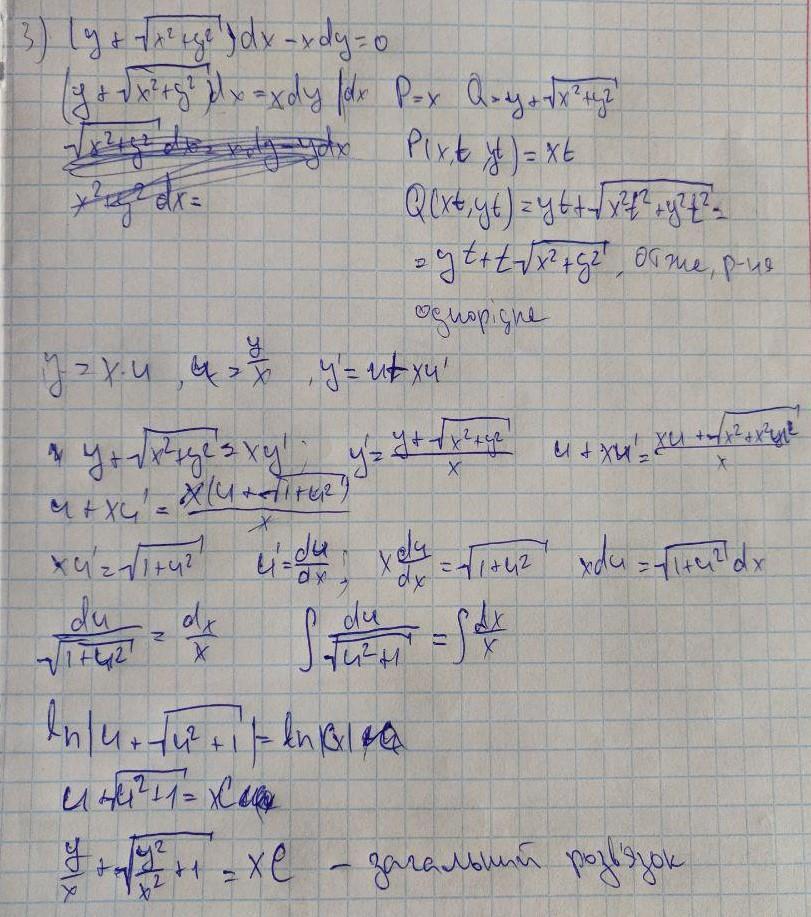 3) (y + √(x²+y²))dx - xdy = 0
(y + √(x²+y²))dx = xdy |dx P = x Q = y + √(x²+y²)
√(x²+y²) dx = xdy - ydx P(xt, yt) = xt
x²+y² dx = Q(xt, yt) = yt + √(x²t² + y²t²) =
= yt + t√(x²+y²), Отже, р-ня
однорідне
y = x·u, u = y/x, y' = u + xu'
y + √(x²+y²) = xy'; y' = (y + √(x²+y²))/x u + xu' = (xu + √(x²+x²u²))/x
u + xu' = x(u + √(1+u²))/x
xu' = √(1+u²) u' = du/dx; x du/dx = √(1+u²) xdu = √(1+u²) dx
du/√(1+u²) = dx/x ∫ du/√(u²+1) = ∫ dx/x
ln|u + √(u²+1)| = ln|Cx|
u + √(u²+1) = xC
y/x + √(y²/x² + 1) = xC - загальний розв'язок